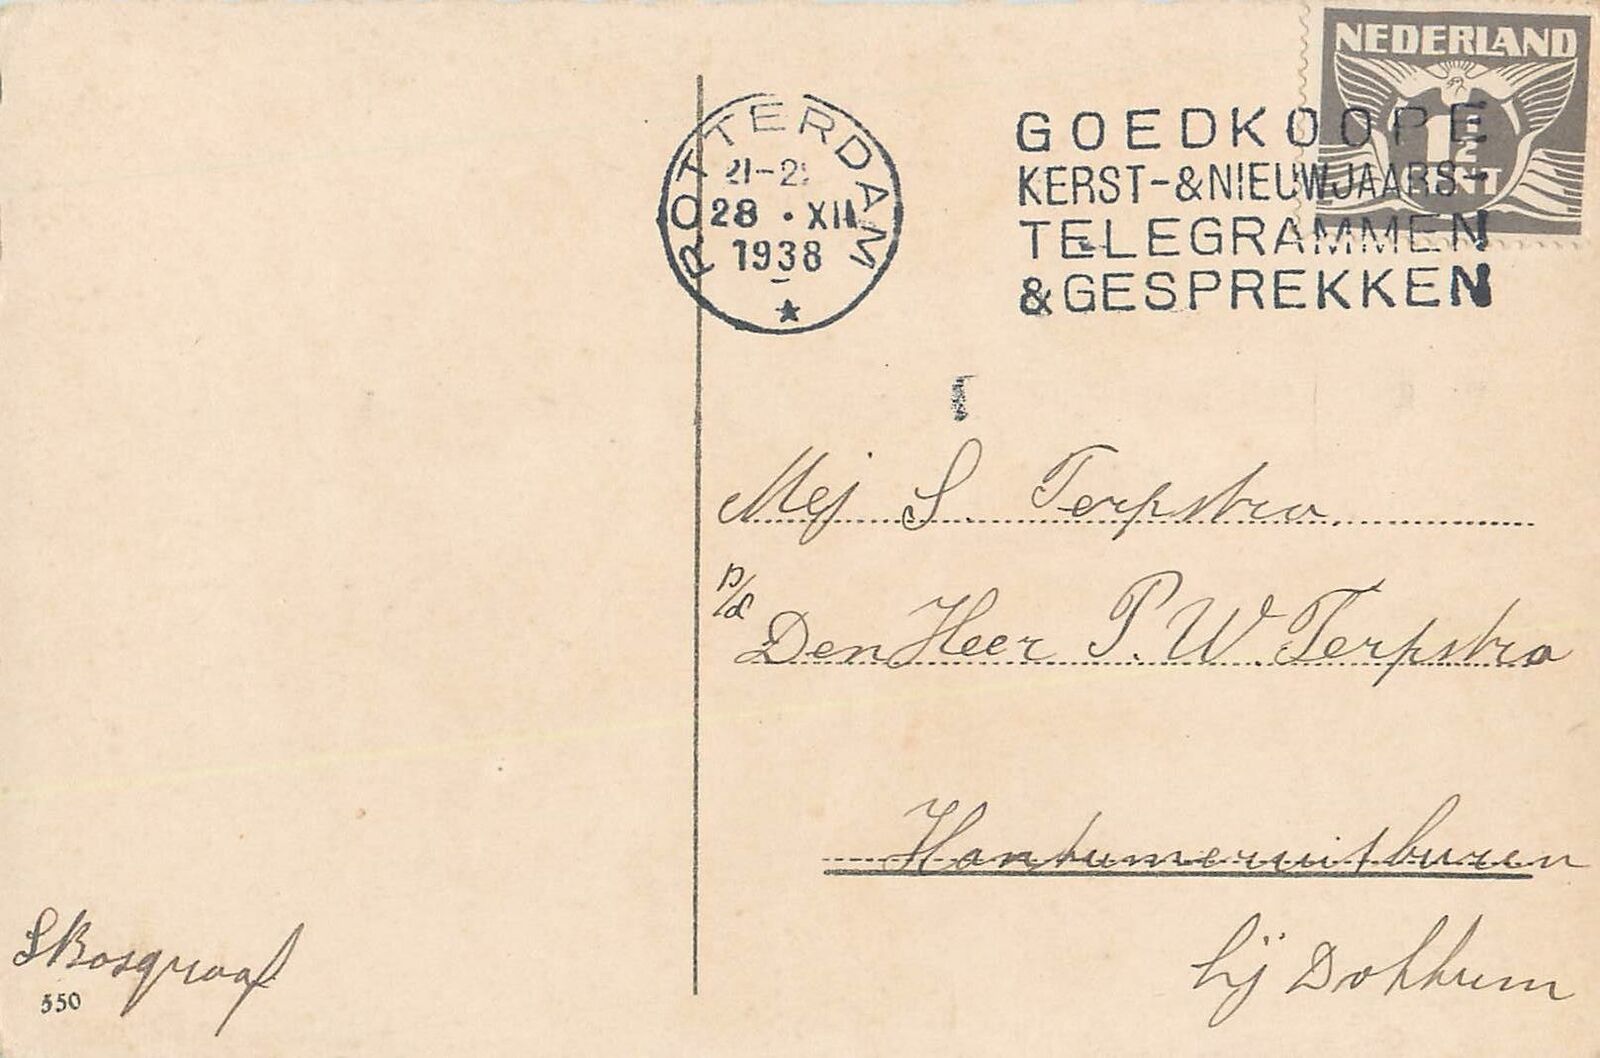 NEDERLAND
1½
CENT
ROTTERDAM
21-2
28 · XII
1938
GOEDKOOPE
KERST-&NIEUWJAARS-
TELEGRAMMEN
&GESPREKKEN
Mej S. Terpstra
p/a
Den Heer P. W. Terpstra
Hantumeruitburen
bij Dokkum
S Bosgraaf
550